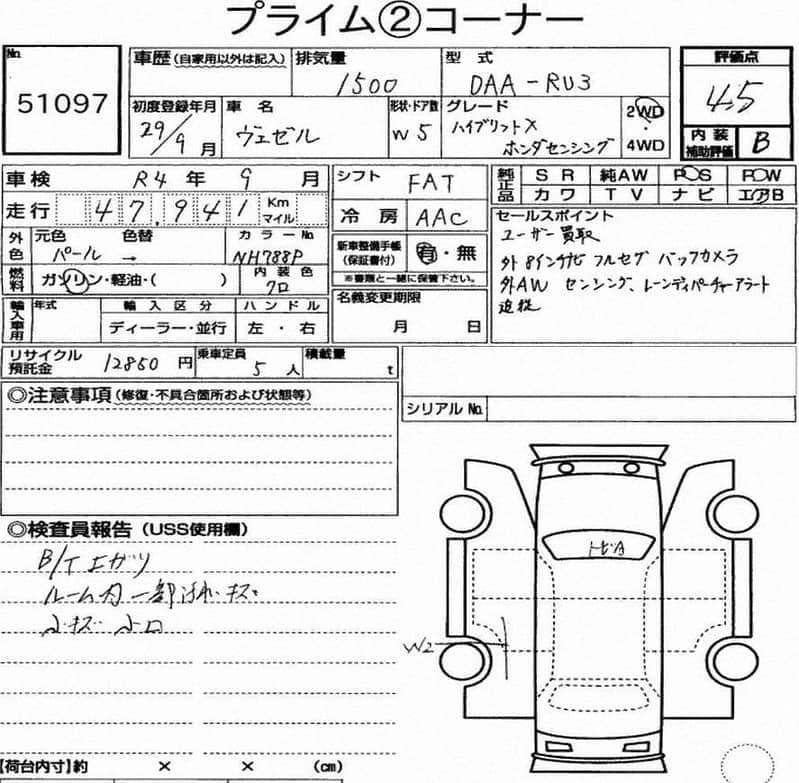 プライム②コーナー
No.
51097
車歴(自家用以外は記入)
排気量
1500
型式
DAA-RU3
評価点
4.5
内装補助評価
B
初度登録年月
29/9月
車名
ヴェゼル
形状・ドア数
W5
グレード
ハイブリットX
ホンダセンシング
2WD
・
4WD
車検 R4年 9月
走行 47,941 Km マイル
シフト FAT
冷房 AAC
純正品
SR 純AW P/S P/W
カワ TV ナビ エアB
外色
元色 色替 カラーNo.
パール → NH788P
燃料
ガソリン・軽油・( )
内装色
クロ
新車整備手帳
(保証書付)
有・無
※書類と一緒に保管下さい。
セールスポイント
ユーザー買取
外8インチナビ フルセグ バックカメラ
外AW センシング、レーンディパーチャーアラート
追従
輸入車用
年式
輸入区分
ハンドル
ディーラー・並行
左・右
名義変更期限
月 日
リサイクル預託金
12850円
乗車定員
5人
積載量
t
シリアルNo.
◎注意事項(修復・不具合箇所および状態等)
◎検査員報告(USS使用欄)
B/Tエガツ
ルーム内一部汚れ・キズ
小キズ 小凹
トビA
W2
【荷台内寸】約 × × (cm)